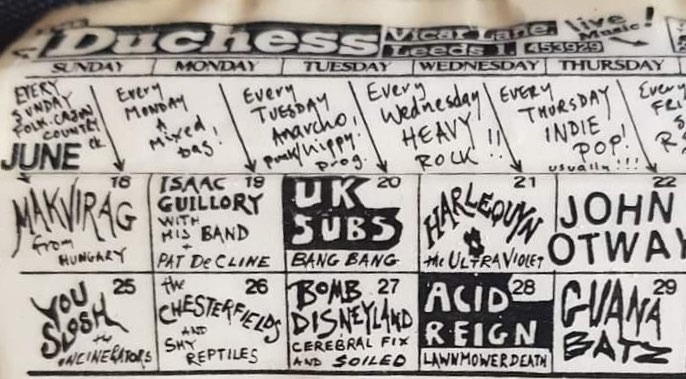 Duchess
Vicar Lane.
Leeds 1. 453929
live Music!
SUNDAY MONDAY TUESDAY WEDNESDAY THURSDAY
EVERY
SUNDAY
FOLK. CAJUN
COUNTRY
JUNE
Every
MONDAY
A
Mixed
bag!
Every
TUESDAY
Anarcho,
punk/hippy.
prog.
Every
Wednesday
HEAVY
ROCK!!
EVERY
THURSDAY
INDIE
POP!
usually!!!
Every
FRI
18
MAKVIRAG
from
HUNGARY
19
ISAAC
GUILLORY
WITH
HIS BAND
+
PAT De CLINE
20
UK
SUBS
BANG BANG
21
HARLEQUYN
&
the ULTRAVIOLET
22
JOHN
OTWAY
25
YOU
SLOSH
the
INCINERATORS
26
the
CHESTERFIELDS
AND
SHY
REPTILES
27
BOMB
DISNEYLAND
CEREBRAL FIX
AND SOILED
28
ACID
REIGN
LAWNMOWERDEATH
29
GUANA
BATZ